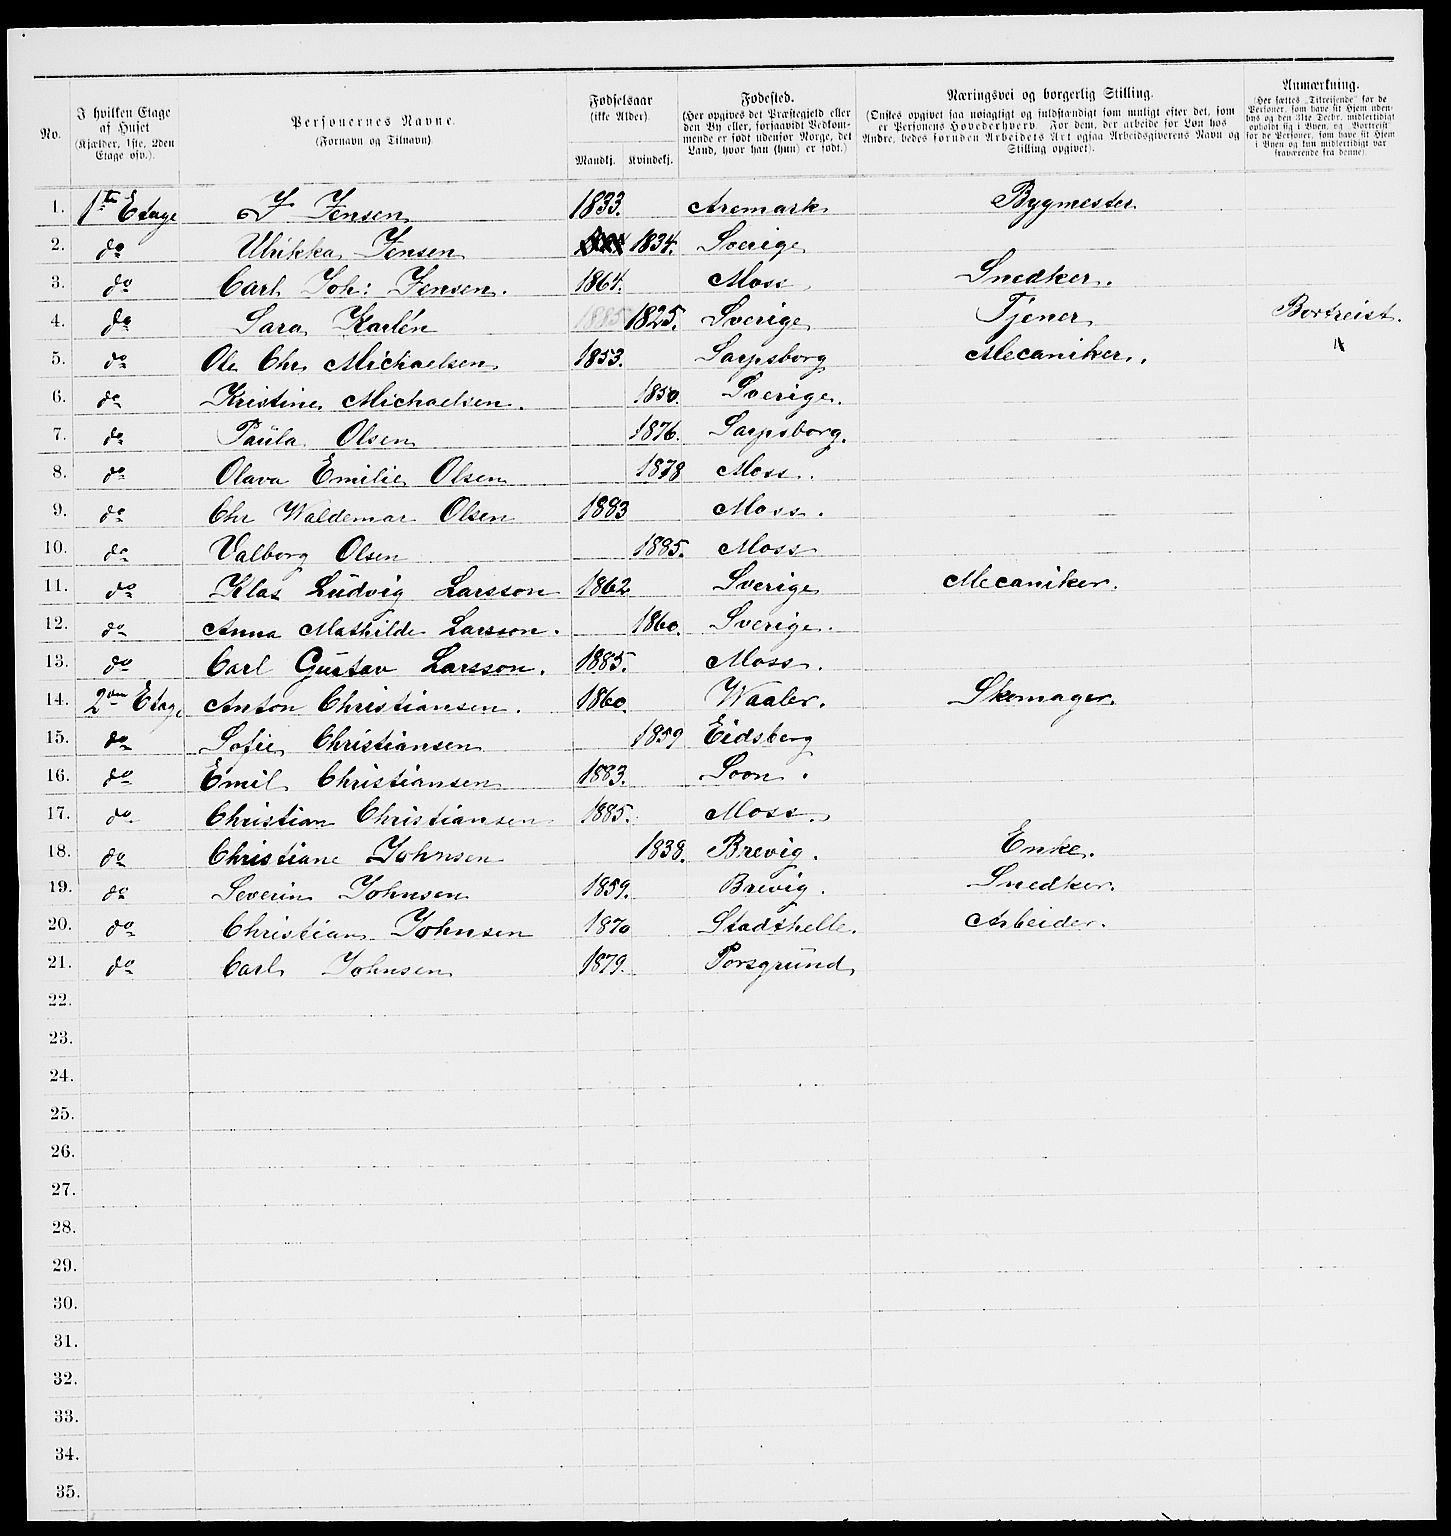 No. | I hvilken Etage af Huset (Kjælder, 1ste, 2den Etage osv.). | Personernes Navne. (Fornavn og Tilnavn) | Fødselsaar (ikke Alder). Mandkj. | Kvindekj. | Fødested. (Her opgives det Præstegjeld eller den By eller, forsaavidt Vedkommende er født udenfor Norge, det Land, hvor han (hun) er født.) | Næringsvei og borgerlig Stilling. (Ønskes opgivet saa nøiagtigt og fuldstændigt som muligt efter det, som er Personens Hovederhverv. For dem, der arbeide for Løn hos Andre, bedes foruden Arbeidets Art ogsaa Arbeidsgiverens Navn og Stilling opgivet). | Anmærkning. (Her sættes „Tilreisende" for de Personer, som have sit Hjem udenbys og den 31te Decbr. midlertidigt opholdt sig i Byen, og „Bortreist" for de Personer, som have sit Hjem i Byen og kun midlertidigt var fraværende fra denne).
1. 1ste Etage J Jensen 1833. Aremark Bygmester
2. do Ulrikka Jensen 1834. Sverige
3. do Carl Joh: Jensen. 1864. Moss Snedker.
4. do Sara Karlén 1885 1825. Sverige Tjener Bortreist.
5. do Ole Chr Michaelsen 1853. Sarpsborg Mecaniker.
6. do Kristine Michaelsen. 1850. Sverige.
7. do Paula Olsen 1876. Sarpsborg.
8. do Olava Emilie Olsen 1878 Moss.
9. do Chr Waldemar Olsen 1883 Moss.
10. do Valborg Olsen 1885. Moss
11. do Klas Ludvig Larsson 1862 Sverige Mecaniker.
12. do Anna Mathilde Larsson. 1860. Sverige.
13. do Carl Gustav Larsson. 1885. Moss.
14. 2den Etage Anton Christiansen. 1860. Waaler. Skomager.
15. do Sofie Christiansen 1859 Eidsberg
16. do Emil Christiansen 1883. Soon.
17. do Christian Christiansen 1885. Moss.
18. do Christiane Johnsen 1838. Brevig. Enke.
19. do Severin Johnsen 1859. Brevig. Snedker.
20. do Christian Johnsen 1870 Stadthelle. Arbeider.
21. do Carl Johnsen 1879. Porsgrund
22.
23.
24.
25.
26.
27.
28.
29.
30.
31.
32.
33.
34.
35.